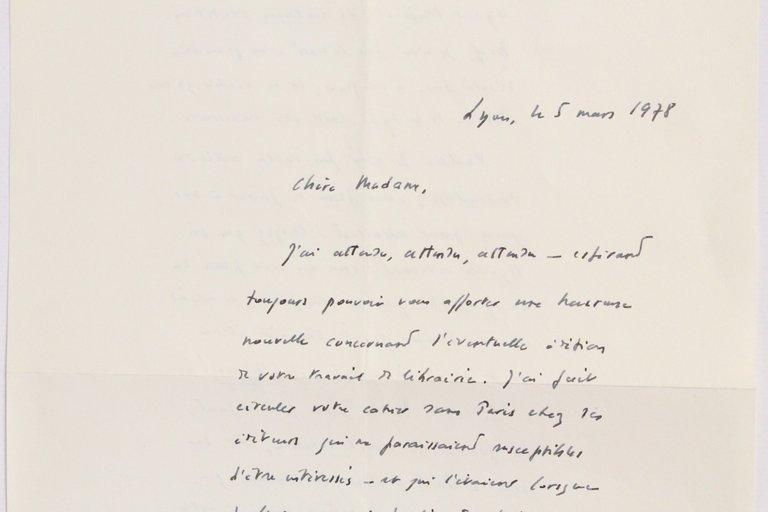 Lyon, le 5 mars 1978
Chère Madame,
J'ai attendu, attendu, attendu — espérant
toujours pouvoir vous apporter une heureuse
nouvelle concernant l'éventuelle édition
de votre travail de librairie. J'ai fait
circuler votre cahier dans Paris chez des
éditeurs qui me paraissaient susceptibles
d'être intéressés — et qui l'étaient lorsque